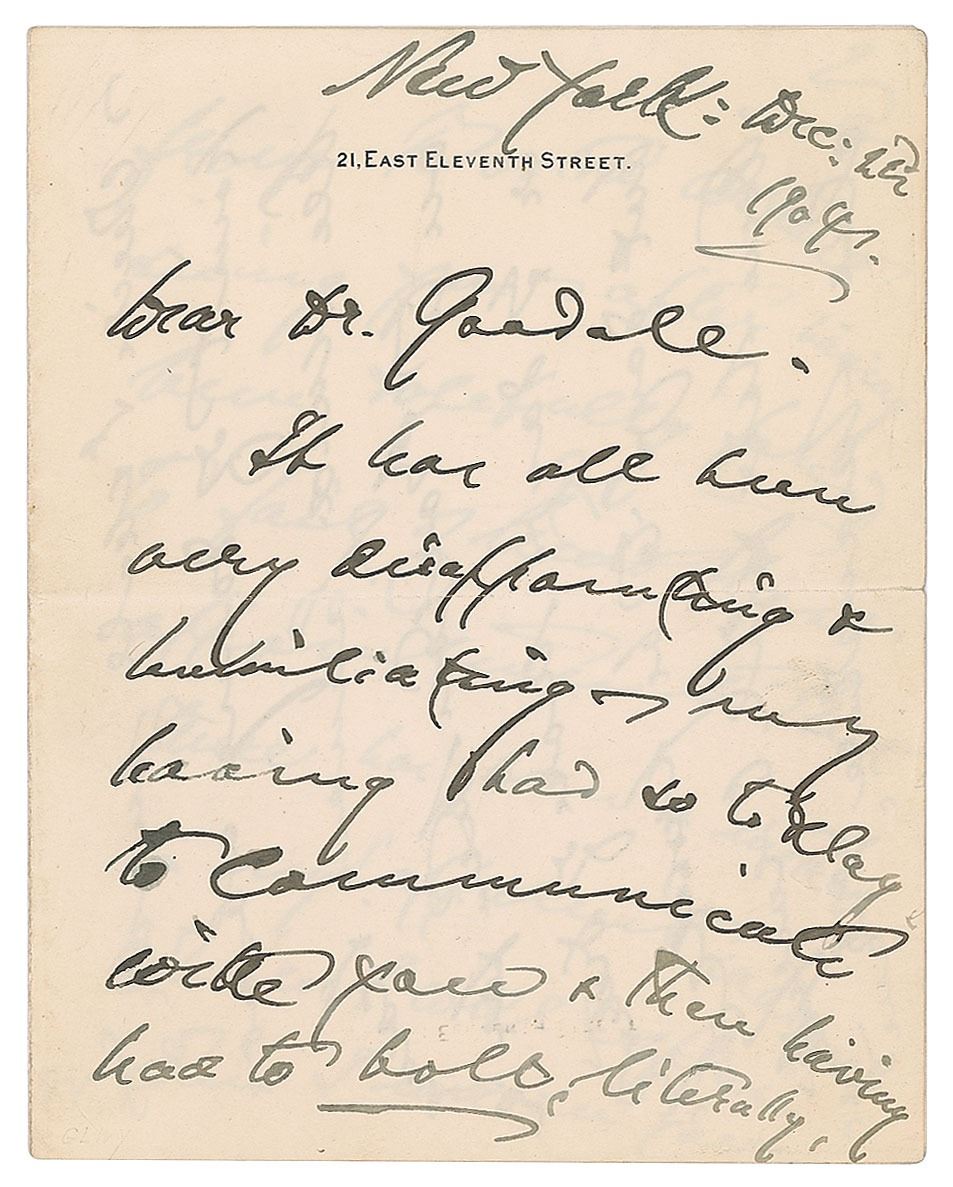 New York: Dec:
21, EAST ELEVENTH STREET.
1904.
Dear Dr. Goodale.
It has all been
very disappointing &
humiliating – my
having had so to delay
to communicate
with you & then having
had to bolt, literally,